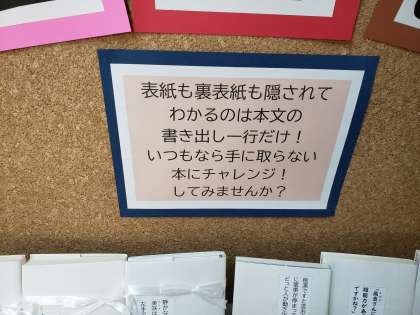 表紙も裏表紙も隠されて
わかるのは本文の
書き出し一行だけ！
いつもなら手に取らない
本にチャレンジ！
してみませんか？